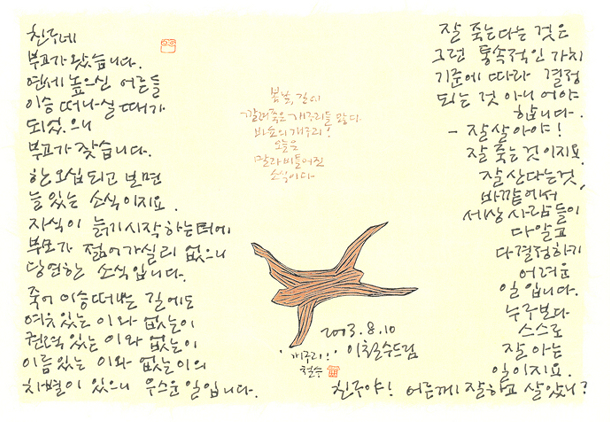 친구네
부고가 왔습니다.
연세 높으신 어른들
이승 떠나실 때가
되었으니
부고가 잦습니다.
한 오십 되고 보면
늘 있는 소식이지요.
자식이 늙기 시작하는 터에
부모가 젊어가실 리 없으니
당연한 소식입니다.
죽어 이승 떠나는 길에도
여한 있는 이와 없는 이
권력 있는 이와 없는 이
이름 있는 이와 없는 이의
차별이 있으니 우스운 일입니다.
봄날, 길에
깔려죽은 개구리들 많다
바쇼의 개구리!
오늘은
말라비틀어진
소식이다
2003.8.10
이철수드림
'개구리!'
철수
잘 죽는다는 것은
그런 통속적인 가치
기준에 따라 결정
되는 것 아니어야
합니다.
- 잘 살아야!
잘 죽는 것이지요.
잘 산다는 것,
바깥에서
세상 사람들이
다 알고
다 결정하기
어려운
일입니다.
누구보다
스스로
잘 아는
일이지요.
친구야! 어른께 잘하고 살았니?